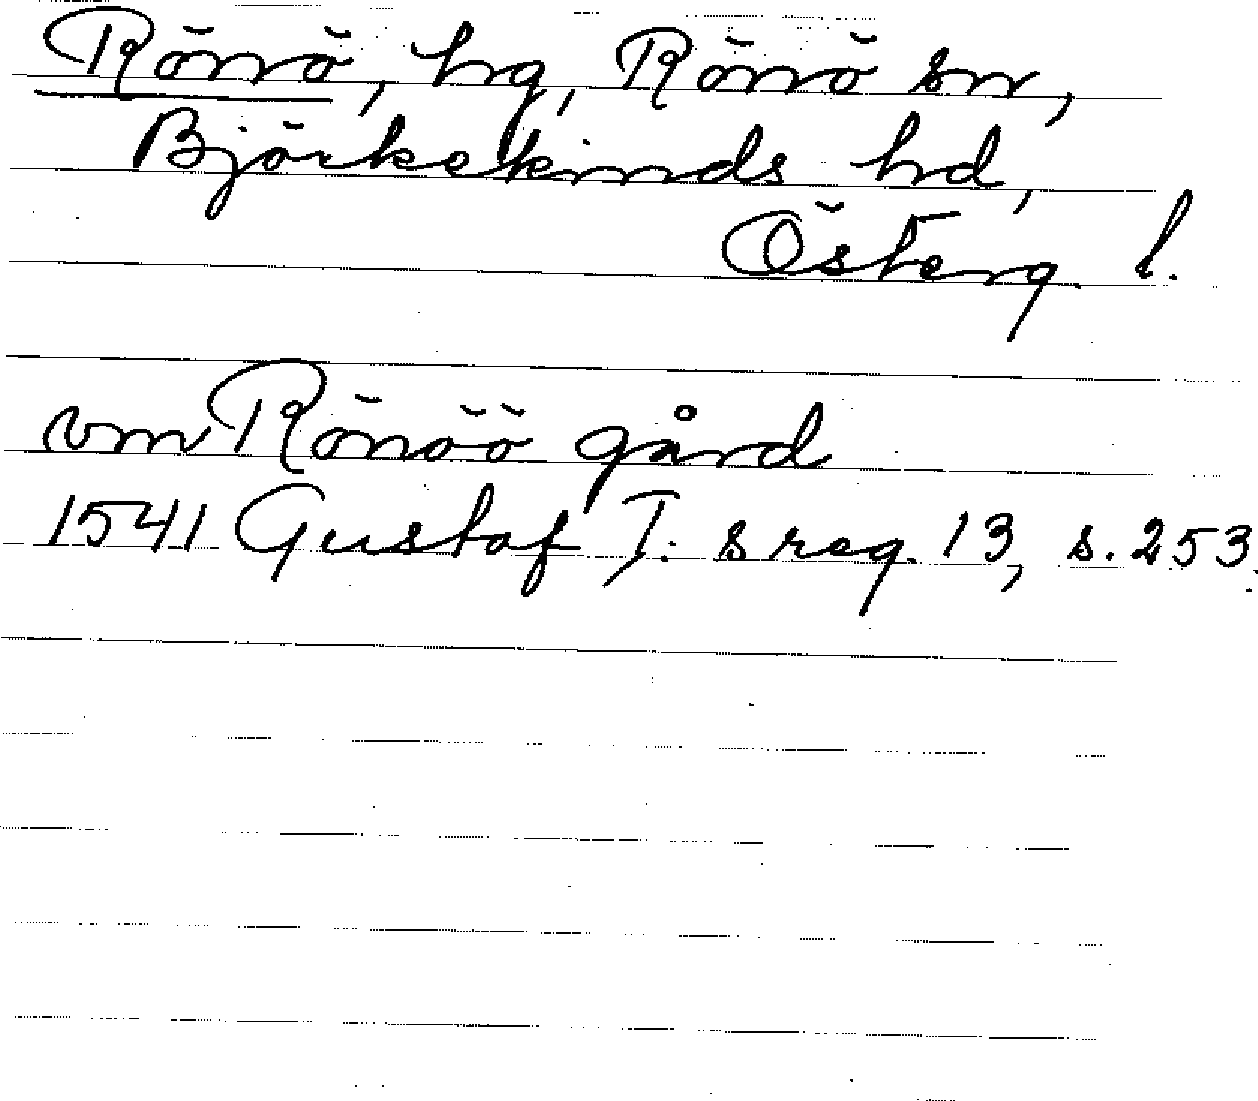 Rönö, hg, Rönö sn,
Björkekinds hd,
Österg. l.
vm Rönöö gård
1541 Gustaf I:s reg. 13, s. 253.